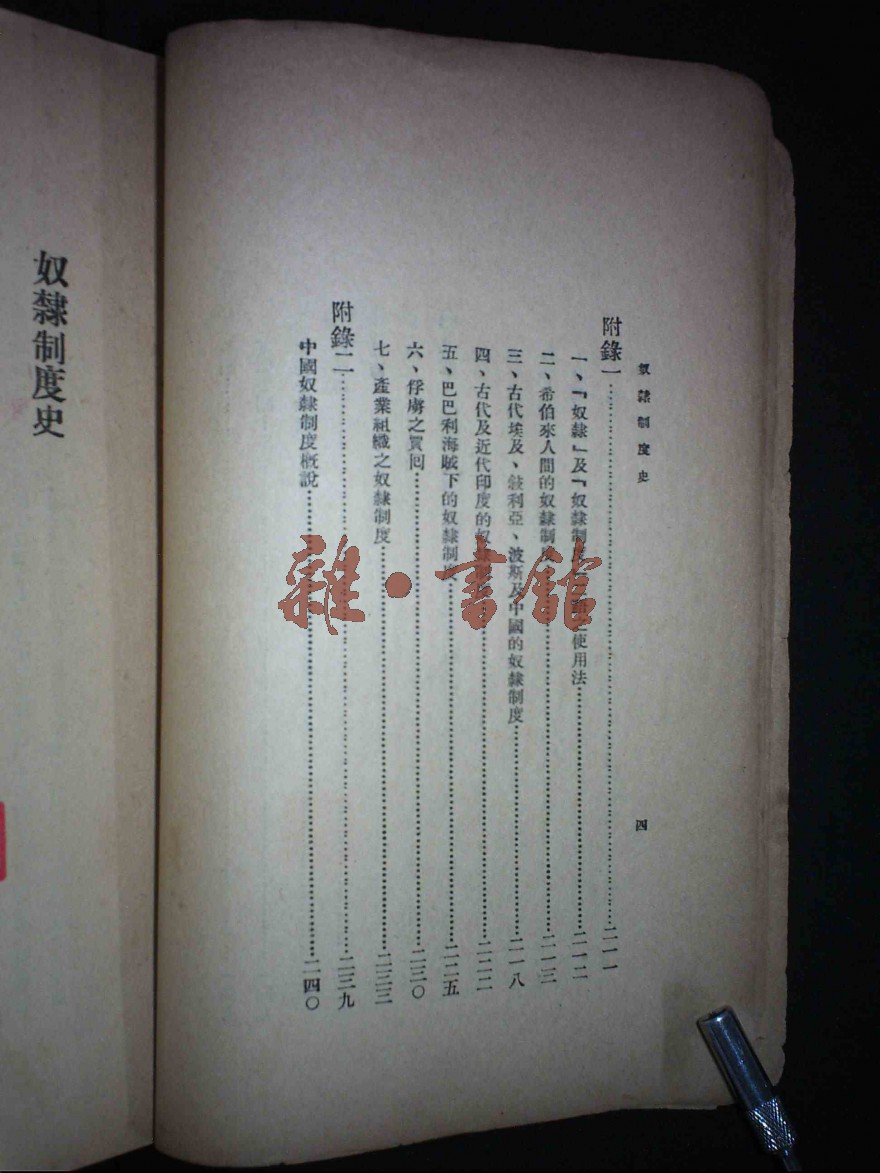 奴隸制度史
四
附錄一……二一一
一、「奴隸」及「奴隸制度使用法……二一二
二、希伯來人間的奴隸制度……二一三
三、古代埃及、敍利亞、波斯及中國的奴隸制度……二一八
四、古代及近代印度的奴隸制度……二二二
五、巴巴利海賊下的奴隸制度……二二五
六、俘虜之買回……二三〇
七、產業組織之奴隸制度……二三三
附錄二……二三九
中國奴隸制度概說……二四〇
奴隸制度史
雜·書館